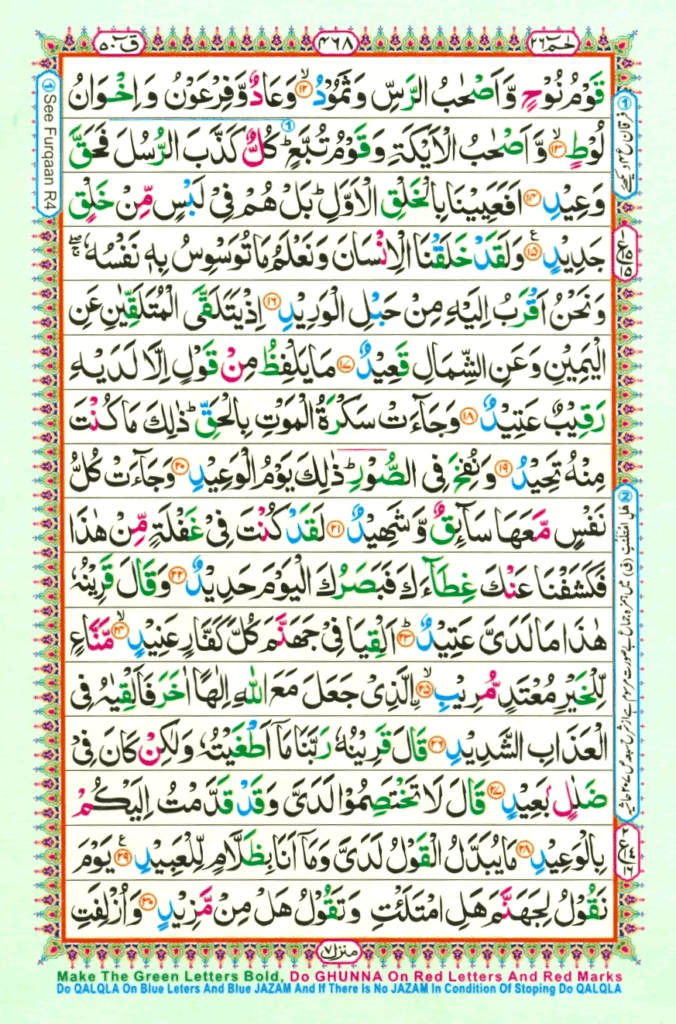 حٰمٓ ٢٦
٤٦٨
قٓ ٥٠
قَوْمُ نُوْحٍ وَّاَصْحٰبُ الرَّسِّ وَثَمُوْدُ ۙ﴿١٢﴾ وَعَادٌ وَّفِرْعَوْنُ وَاِخْوَانُ
لُوْطٍ ۙ﴿١٣﴾ وَّاَصْحٰبُ الْاَيْكَةِ وَقَوْمُ تُبَّعٍ ؕ ① كُلٌّ كَذَّبَ الرُّسُلَ فَحَقَّ
وَعِيْدِ ﴿١٤﴾ اَفَعَيِيْنَا بِالْخَلْقِ الْاَوَّلِ ؕ بَلْ هُمْ فِيْ لَبْسٍ مِّنْ خَلْقٍ
جَدِيْدٍ ﴿١٥﴾ ع وَلَقَدْ خَلَقْنَا الْاِنْسَانَ وَنَعْلَمُ مَا تُوَسْوِسُ بِهٖ نَفْسُهٗ ۖۚ
وَنَحْنُ اَقْرَبُ اِلَيْهِ مِنْ حَبْلِ الْوَرِيْدِ ﴿١٦﴾ اِذْ يَتَلَقَّى الْمُتَلَقِّيٰنِ عَنِ
الْيَمِيْنِ وَعَنِ الشِّمَالِ قَعِيْدٌ ﴿١٧﴾ مَا يَلْفِظُ مِنْ قَوْلٍ اِلَّا لَدَيْهِ
رَقِيْبٌ عَتِيْدٌ ﴿١٨﴾ وَجَآءَتْ سَكْرَةُ الْمَوْتِ بِالْحَقِّ ؕ ذٰلِكَ مَا كُنْتَ
مِنْهُ تَحِيْدُ ﴿١٩﴾ وَنُفِخَ فِى الصُّوْرِ ؕ ذٰلِكَ يَوْمُ الْوَعِيْدِ ﴿٢٠﴾ وَجَآءَتْ كُلُّ
نَفْسٍ مَّعَهَا سَآئِقٌ وَّشَهِيْدٌ ﴿٢١﴾ لَقَدْ كُنْتَ فِيْ غَفْلَةٍ مِّنْ هٰذَا
فَكَشَفْنَا عَنْكَ غِطَآءَكَ فَبَصَرُكَ الْيَوْمَ حَدِيْدٌ ﴿٢٢﴾ وَقَالَ قَرِيْنُهٗ
هٰذَا مَا لَدَيَّ عَتِيْدٌ ؕ﴿٢٣﴾ اَلْقِيَا فِيْ جَهَنَّمَ كُلَّ كَفَّارٍ عَنِيْدٍ ۙ﴿٢٤﴾ مَّنَّاعٍ
لِّلْخَيْرِ مُعْتَدٍ مُّرِيْبِ ۙ﴿٢٥﴾ اِلَّذِيْ جَعَلَ مَعَ اللّٰهِ اِلٰهًا اٰخَرَ فَاَلْقِيٰهُ فِى
الْعَذَابِ الشَّدِيْدِ ﴿٢٦﴾ قَالَ قَرِيْنُهٗ رَبَّنَا مَآ اَطْغَيْتُهٗ وَلٰكِنْ كَانَ فِيْ
ضَلٰلٍ بَعِيْدٍ ﴿٢٧﴾ قَالَ لَا تَخْتَصِمُوْا لَدَيَّ وَقَدْ قَدَّمْتُ اِلَيْكُمْ
بِالْوَعِيْدِ ﴿٢٨﴾ مَا يُبَدَّلُ الْقَوْلُ لَدَيَّ وَمَآ اَنَا بِظَلَّامٍ لِّلْعَبِيْدِ ﴿٢٩﴾ ع يَوْمَ
نَقُوْلُ لِجَهَنَّمَ هَلِ امْتَلَئْتِ وَتَقُوْلُ هَلْ مِنْ مَّزِيْدٍ ﴿٣٠﴾ وَاُزْلِفَتِ
① See Furqaan R4
منزل ٧
Make The Green Letters Bold, Do GHUNNA On Red Letters And Red Marks
Do QALQLA On Blue Leters And Blue JAZAM And If There Is No JAZAM In Condition Of Stoping Do QALQLA